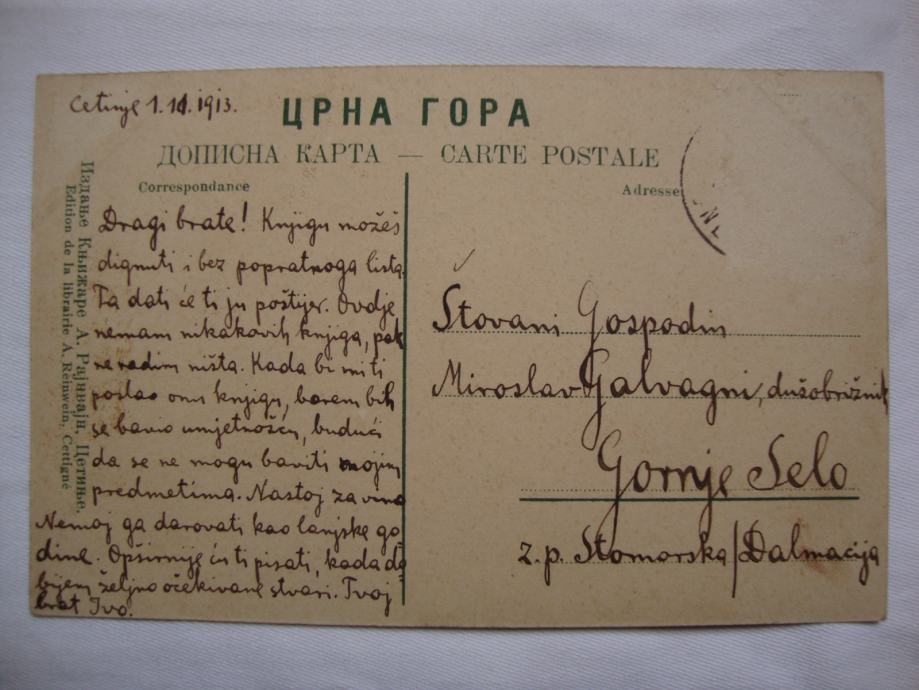 Cetinje 1.11.1913.
ЦРНА ГОРА
ДОПИСНА КАРТА — CARTE POSTALE
Correspondance
Adresse
Издање Књижаре А. Рајнвајн, Цетиње.
Edition de la librairie A. Reinwein, Cettigné
Dragi brate! Knjigu možeš
dignuti i bez popratnoga lista.
Ta dati će ti ju poštijer. Ovdje
nemam nikakovih knjiga, pak
ne radim ništa. Kada bi mi ti
poslao onu knjigu, barem bih
se bavio umjetnošću, budući
da se ne mogu baviti mojim
predmetima. Nastoj za vino
Nemoj ga darovati kao lanjske go
dine. Opširnije ću ti pisati, kada do
bijem željno očekivane stvari. Tvoj
brat Ivo.
Štovani Gospodin
Miroslav Galvagni, dušobrižnik
Gornje Selo
z.p. Stomorska/Dalmacija